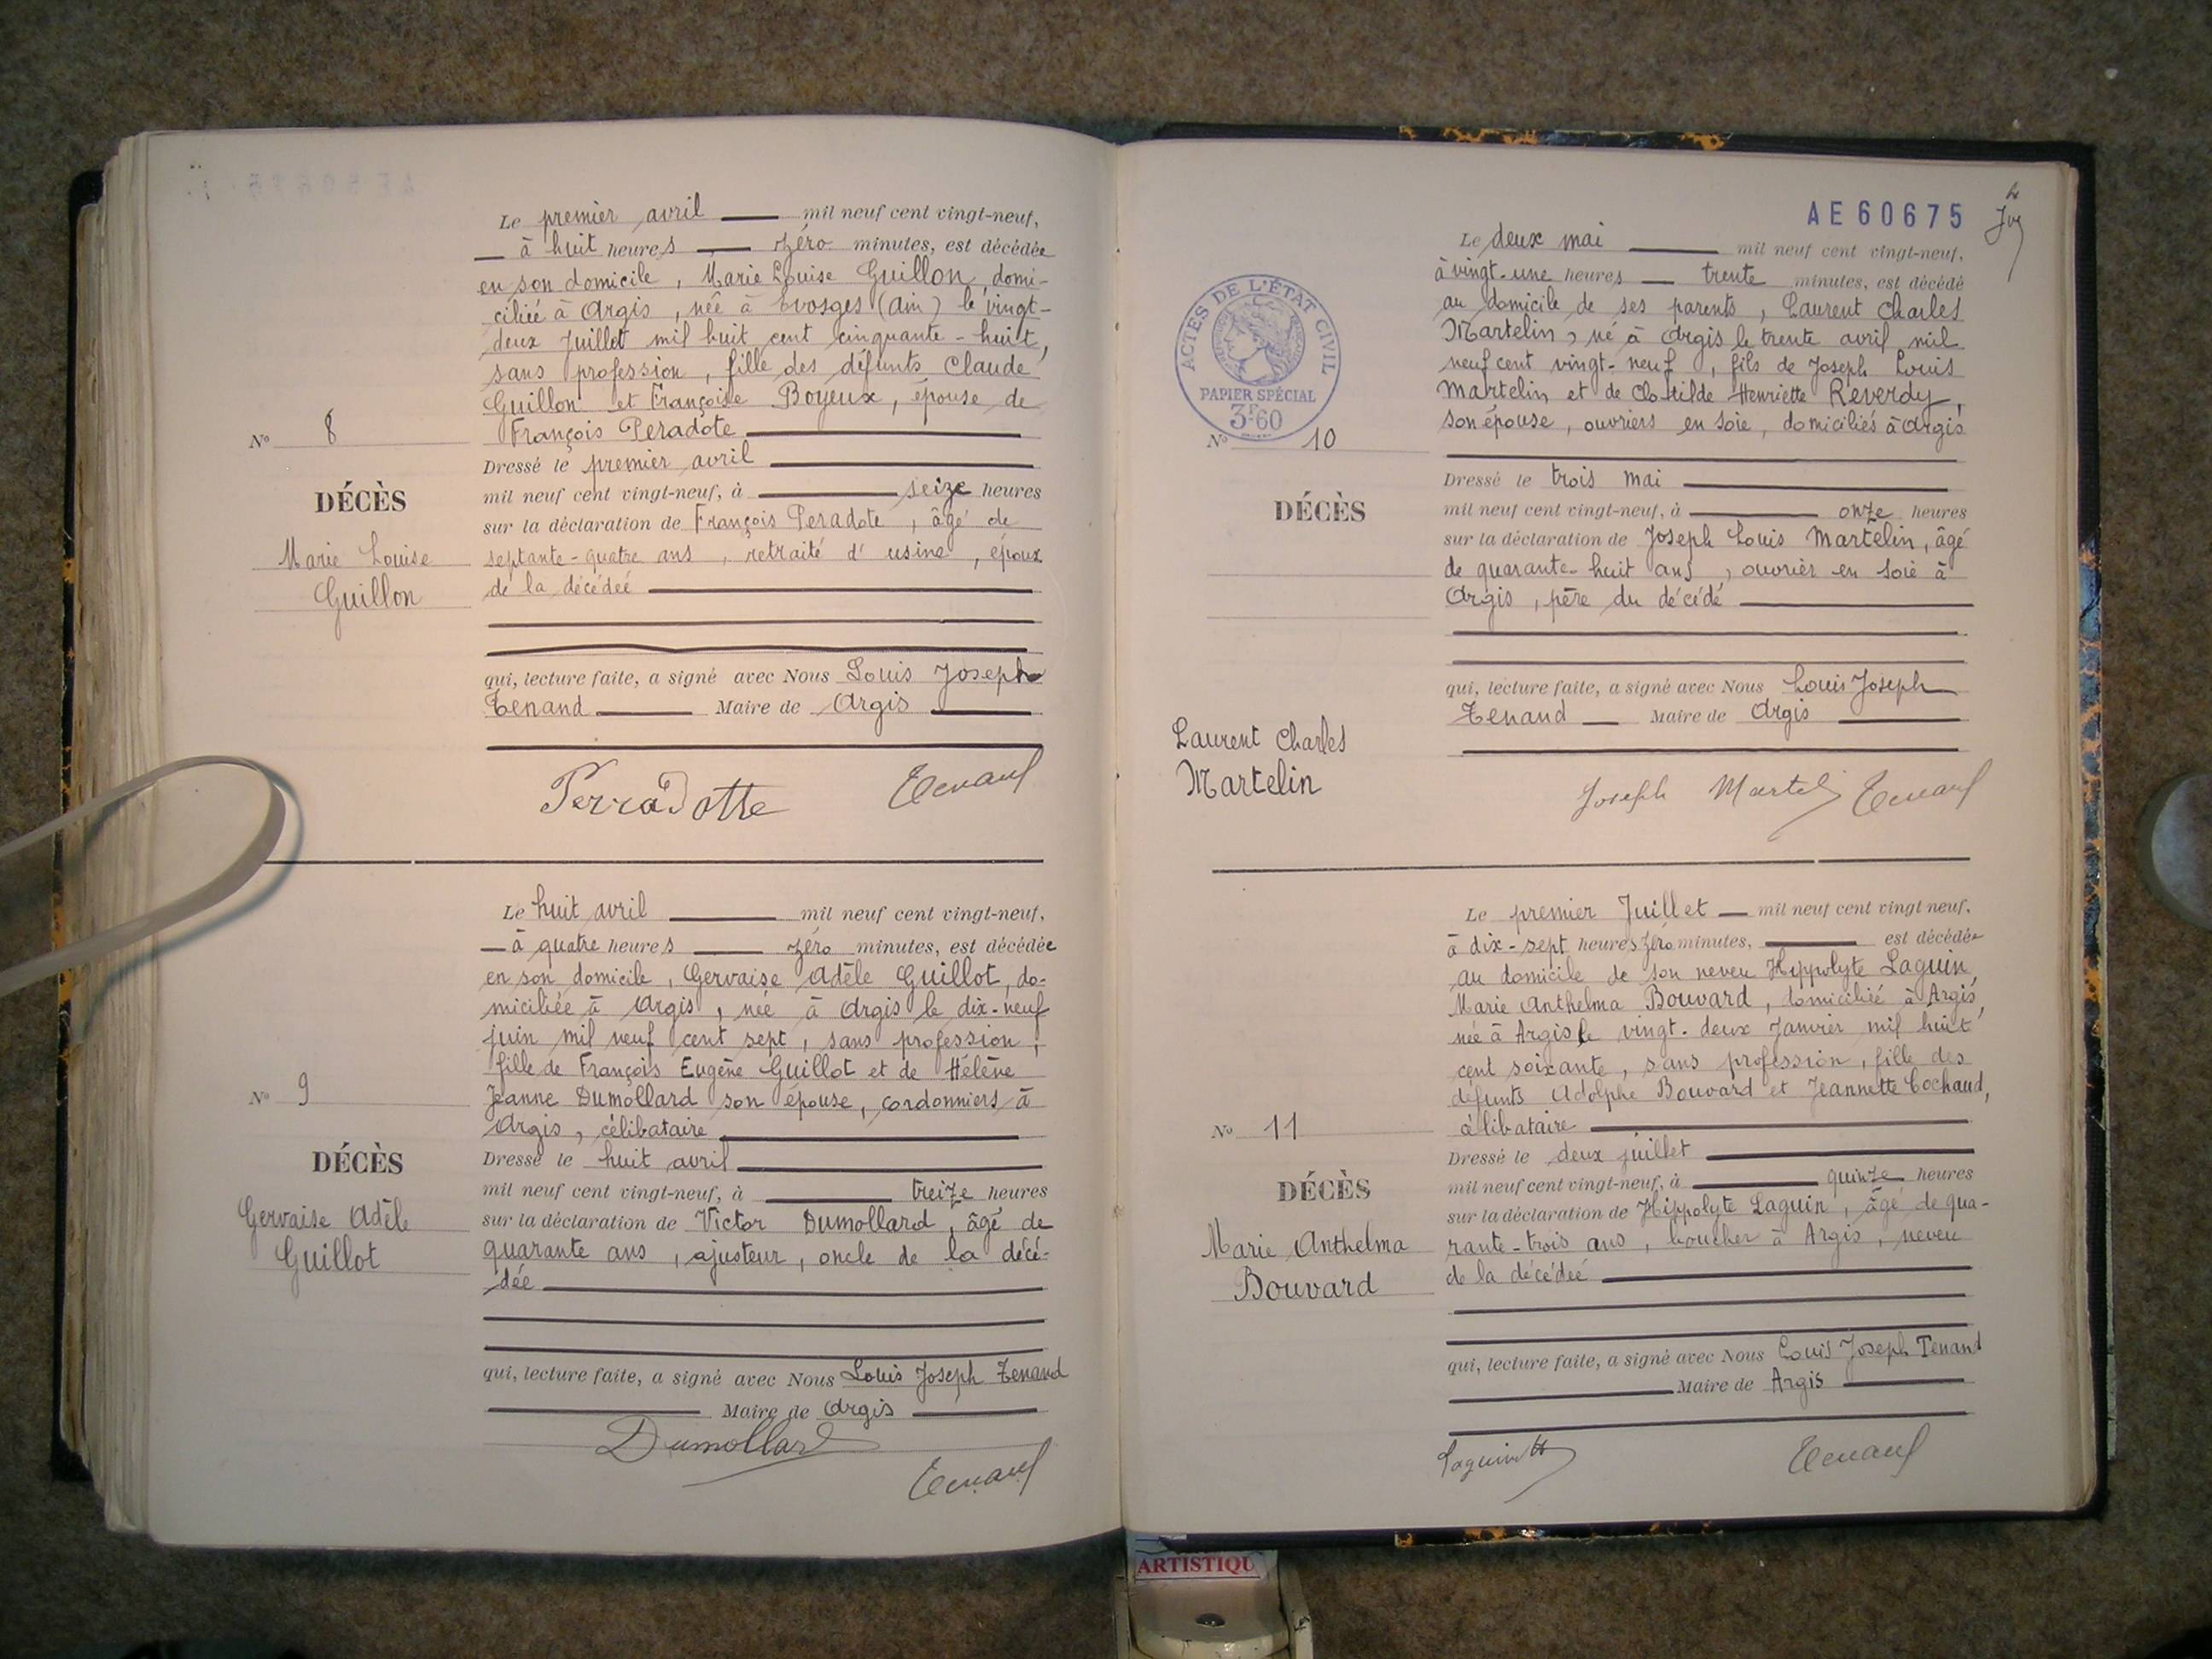 Le premier avril mil neuf cent vingt-neuf,
à huit heures zéro minutes, est décédée
en son domicile, Marie Louise Guillon, domi-
ciliée à Argis, née à Evosges (Ain) le vingt-
deux Juillet mil huit cent cinquante-huit,
sans profession, fille des défunts Claude
Guillon et Françoise Boyeux, épouse de
François Peradote
N° 8
Dressé le premier avril
DÉCÈS
mil neuf cent vingt-neuf, à seize heures
sur la déclaration de François Peradote, âgé de
Marie Louise
septante-quatre ans, retraité d'usine, époux
Guillon
de la décédée
qui, lecture faite, a signé avec Nous Louis Joseph
Tenand Maire de Argis
Perradotte Tenand
Le huit avril mil neuf cent vingt-neuf,
à quatre heures zéro minutes, est décédée
en son domicile, Gervaise Adèle Guillot, do-
miciliée à Argis, née à Argis le dix-neuf
juin mil neuf cent sept, sans profession,
fille de François Eugène Guillot et de Hélène
N° 9
Jeanne Dumollard son épouse, cordonniers à
Argis, célibataire
DÉCÈS
Dressé le huit avril
mil neuf cent vingt-neuf, à treize heures
Gervaise Adèle
sur la déclaration de Victor Dumollard, âgé de
Guillot
quarante ans, ajusteur, oncle de la décé-
dée
qui, lecture faite, a signé avec Nous Louis Joseph Tenand
Maire de Argis
Dumollard
Tenand
AE60675
4
Le deux mai mil neuf cent vingt-neuf,
à vingt-une heures trente minutes, est décédé
au domicile de ses parents, Laurent Charles
Martelin, né à Argis le trente avril mil
neuf cent vingt-neuf, fils de Joseph Louis
Martelin et de Clotilde Henriette Reverdy,
son épouse, ouvriers en soie, domiciliés à Argis
ACTES DE L'ÉTAT CIVIL
PAPIER SPÉCIAL
3F60
N° 10
Dressé le trois mai
DÉCÈS
mil neuf cent vingt-neuf, à onze heures
sur la déclaration de Joseph Louis Martelin, âgé
de quarante-huit ans, ouvrier en soie à
Argis, père du décédé
qui, lecture faite, a signé avec Nous Louis Joseph
Tenand Maire de Argis
Laurent Charles
Martelin
Joseph Martel Tenand
Le premier Juillet mil neuf cent vingt neuf,
à dix-sept heures zéro minutes, est décédée
au domicile de son neveu Hippolyte Laguin,
Marie Anthelma Bouvard, domiciliée à Argis,
née à Argis le vingt-deux Janvier mil huit
cent soixante, sans profession, fille des
défunts Adolphe Bouvard et Jeannette Cochaud,
N° 11
célibataire
Dressé le deux juillet
DÉCÈS
mil neuf cent vingt-neuf, à quinze heures
sur la déclaration de Hippolyte Laguin, âgé de qua-
Marie Anthelma
rante-trois ans, boucher à Argis, neveu
Bouvard
de la décédée
qui, lecture faite, a signé avec Nous Louis Joseph Tenand
Maire de Argis
Laguin H Tenand
ARTISTIQU